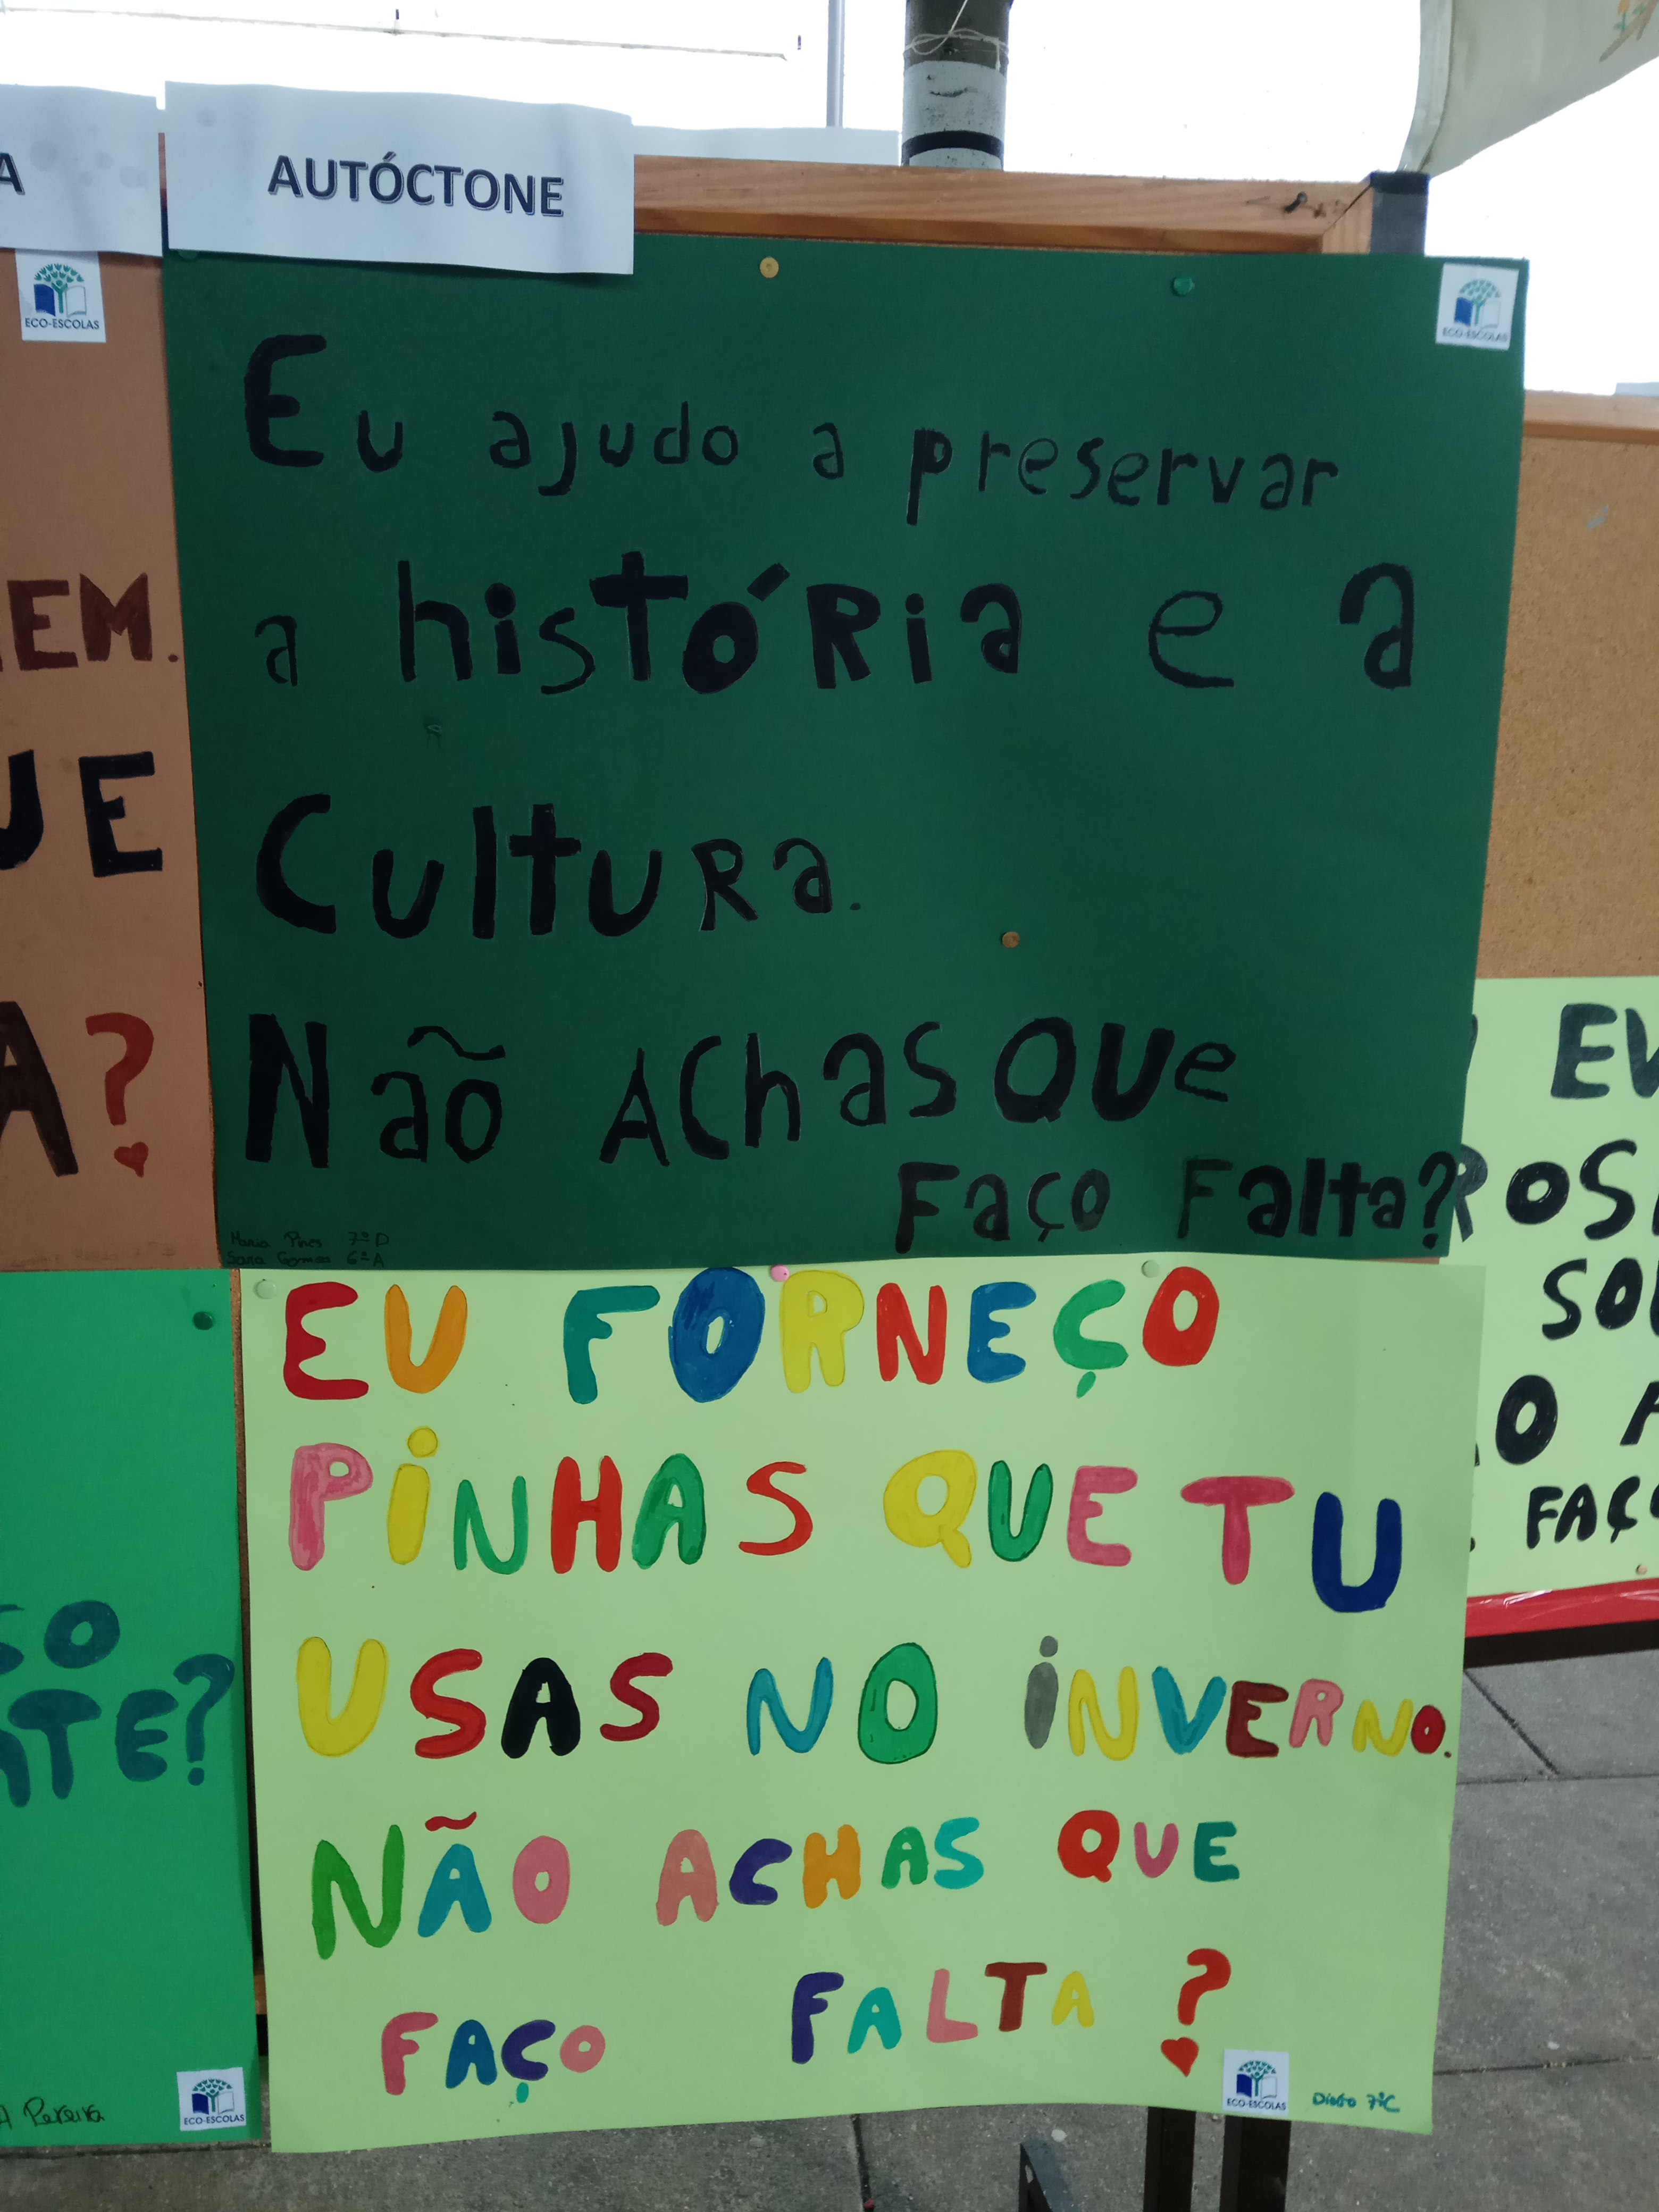 A
AUTÓCTONE
ECO-ESCOLAS
ECO-ESCOLAS
Eu ajudo a preservar
a história e a
Cultura.
Não Achas que
Faço Falta?
Maria Pires 7º D
Sara Gomes 6º A
EM.
UE
A?
EU FORNEÇO
PINHAS QUE TU
USAS NO INVERNO.
NÃO ACHAS QUE
FAÇO FALTA?
ECO-ESCOLAS
Diogo 7ºC
SO
ATE?
A Pereira
ECO-ESCOLAS
EU
ROS
SO
O A
FAÇ